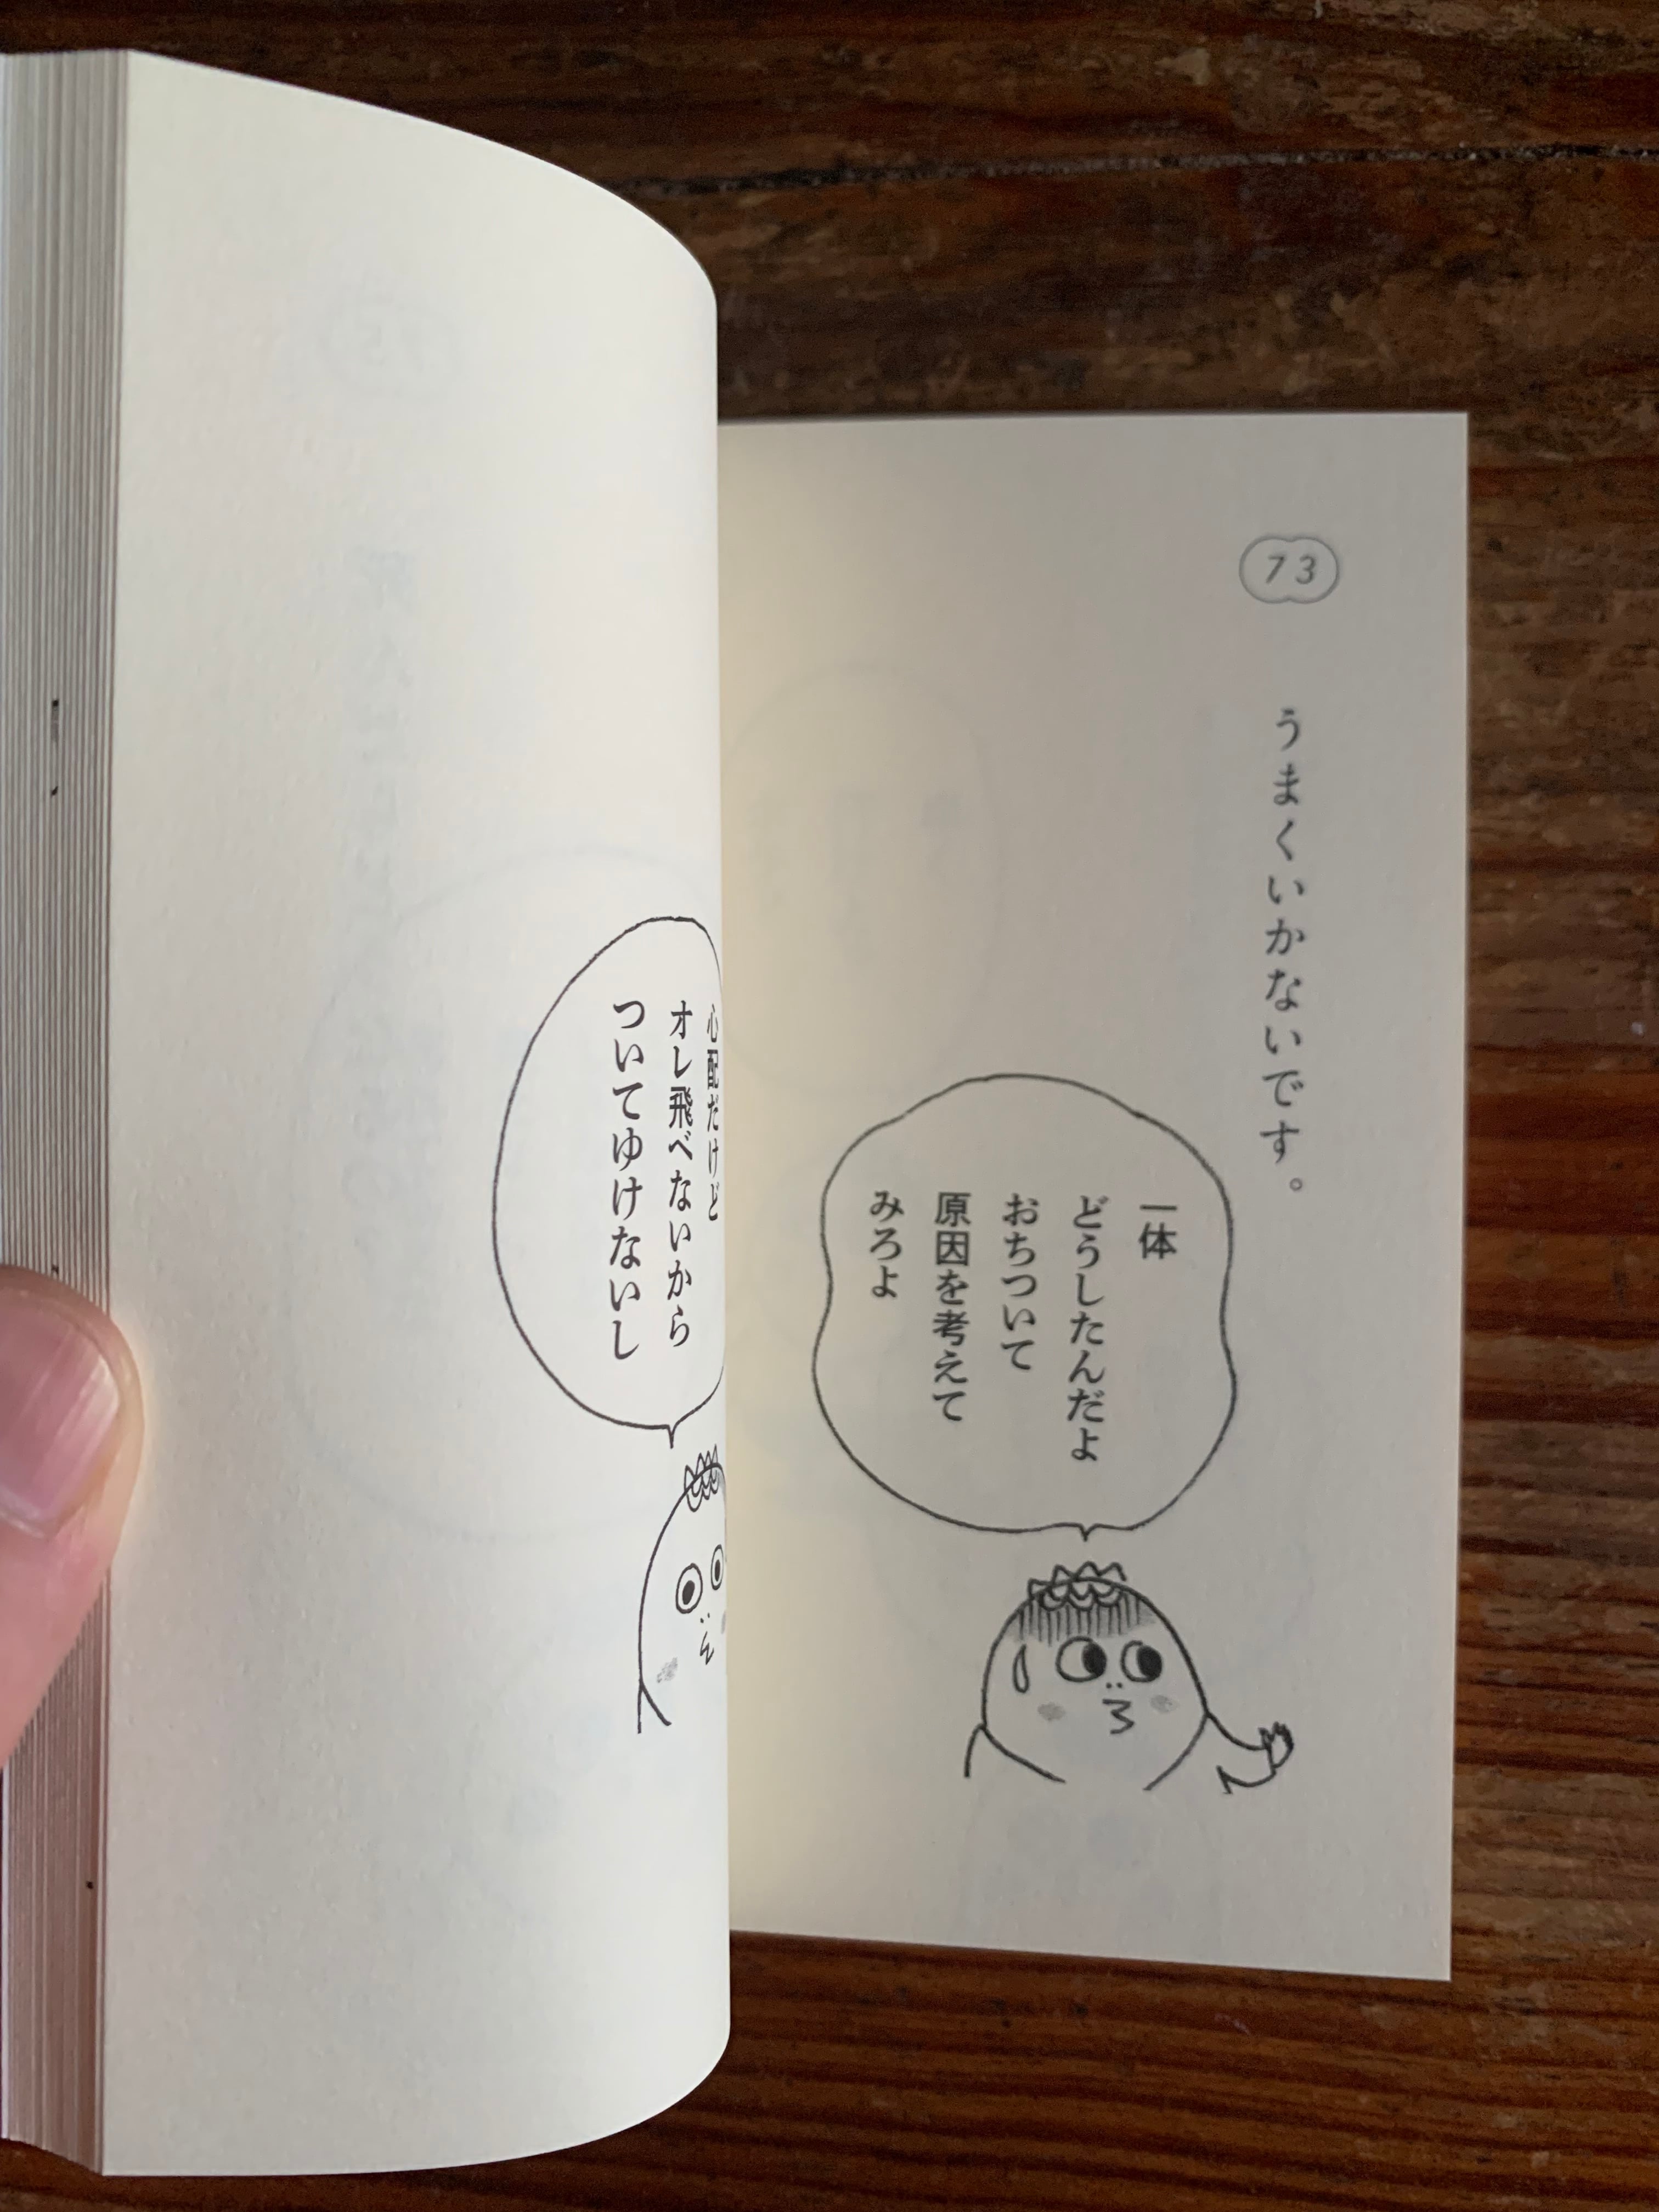 73
うまくいかないです。
一体
どうしたんだよ
おちついて
原因を考えて
みろよ
心配だけど
オレ飛べないから
ついてゆけないし